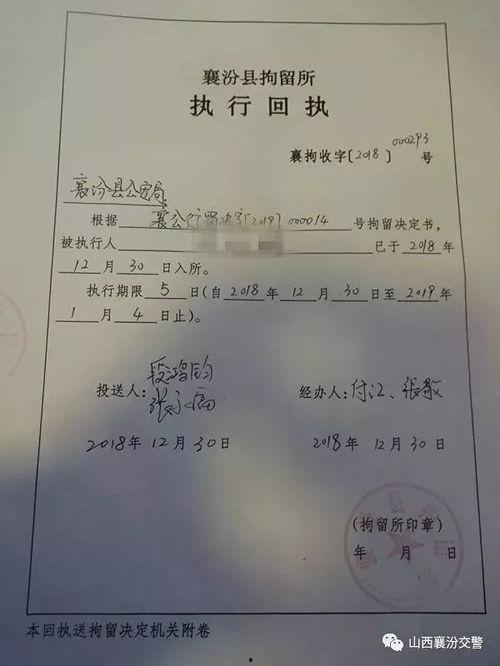 襄汾县拘留所
执行回执
襄拘收字[2018]000293号
襄汾县公安局:
根据襄公行罚决字[2019]000014号拘留决定书,
被执行人 已于2018年
12月30日入所。
执行期限5日(自2018年12月30日至2019年
1月4日止)。
投送人:段鸿钧
张
经办人:付江、张敬
2018年12月30日
2018年12月30日
(拘留所印章)
年 月 日
本回执送拘留决定机关附卷
山西襄汾交警